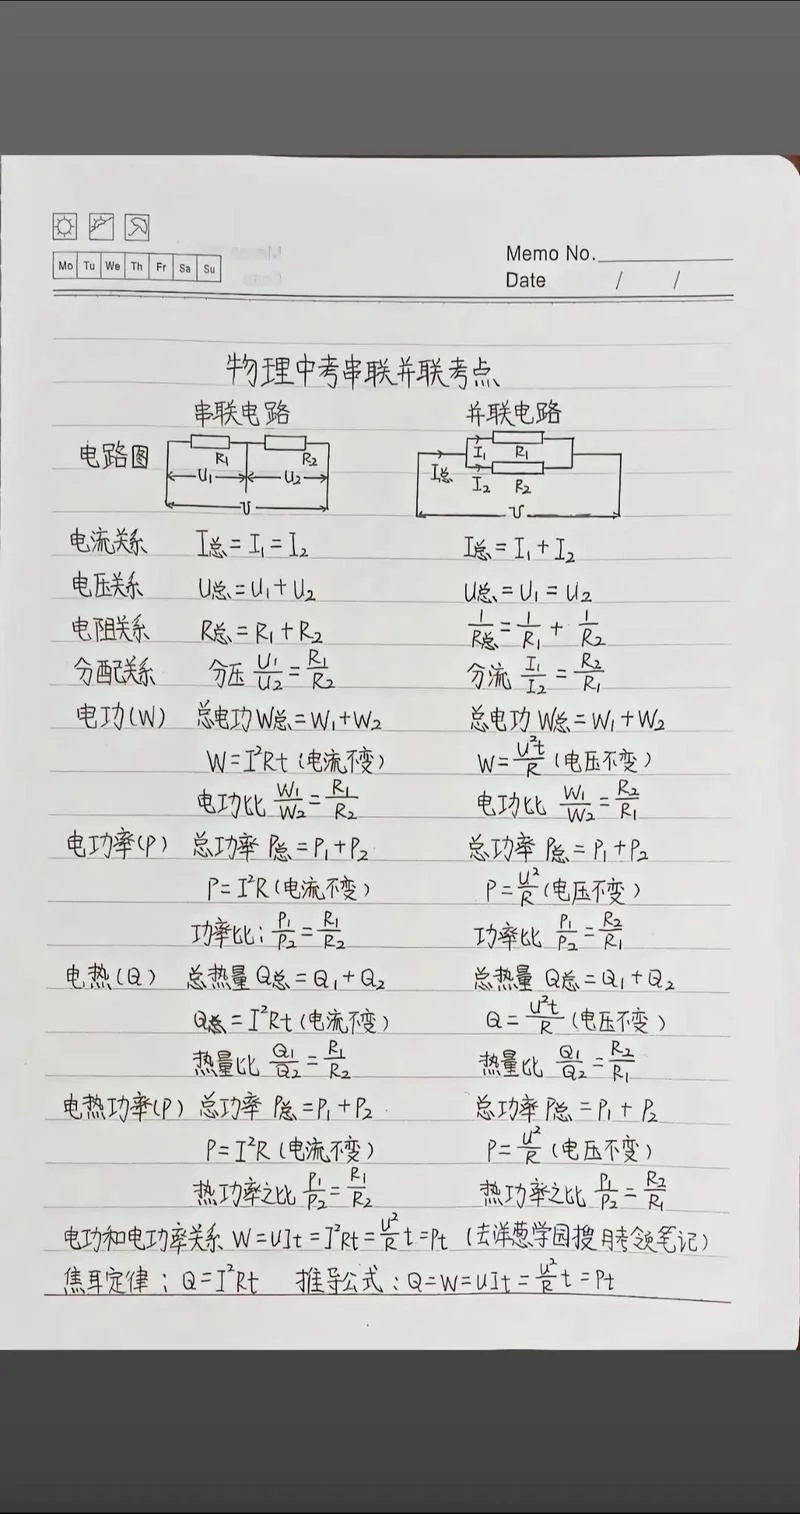 Mo Tu We Th Fr Sa Su
Memo No.
Date / /
物理中考串联并联考点
串联电路 并联电路
电路图 R₁ R₂ U₁ U₂ U I总 I₁ R₁ I₂ R₂ U
电流关系 I总=I₁=I₂ I总=I₁+I₂
电压关系 U总=U₁+U₂ U总=U₁=U₂
电阻关系 R总=R₁+R₂ 1/R总=1/R₁+1/R₂
分配关系 分压 U₁/U₂=R₁/R₂ 分流 I₁/I₂=R₂/R₁
电功(W) 总电功W总=W₁+W₂ 总电功W总=W₁+W₂
W=I²Rt(电流不变) W=U²t/R(电压不变)
电功比 W₁/W₂=R₁/R₂ 电功比 W₁/W₂=R₂/R₁
电功率(P) 总功率 P总=P₁+P₂ 总功率 P总=P₁+P₂
P=I²R(电流不变) P=U²/R(电压不变)
功率比:P₁/P₂=R₁/R₂ 功率比 P₁/P₂=R₂/R₁
电热(Q) 总热量Q总=Q₁+Q₂ 总热量 Q总=Q₁+Q₂
Q总=I²Rt(电流不变) Q=U²t/R(电压不变)
热量比 Q₁/Q₂=R₁/R₂ 热量比 Q₁/Q₂=R₂/R₁
电热功率(P) 总功率 P总=P₁+P₂ 总功率 P总=P₁+P₂
P=I²R(电流不变) P=U²/R(电压不变)
热功率之比 P₁/P₂=R₁/R₂ 热功率之比 P₁/P₂=R₂/R₁
电功和电功率关系 W=UIt=I²Rt=U²/R t=Pt (去洋葱学园搜月考领笔记)
焦耳定律:Q=I²Rt 推导公式:Q=W=UIt=U²/R t=Pt